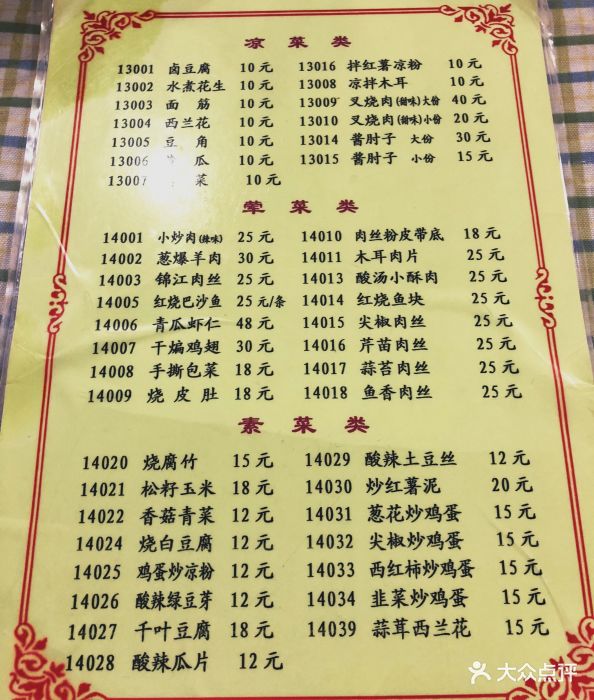 凉菜类
13001 卤豆腐 10元 13016 拌红薯凉粉 10元
13002 水煮花生 10元 13008 凉拌木耳 10元
13003 面筋 10元 13009 叉烧肉(甜味)大份 40元
13004 西兰花 10元 13010 叉烧肉(甜味)小份 20元
13005 豆角 10元 13014 酱肘子 大份 30元
13006 瓜 10元 13015 酱肘子 小份 15元
13007 菜 10元
荤菜类
14001 小炒肉(辣味) 25元 14010 肉丝粉皮带底 18元
14002 葱爆羊肉 30元 14011 木耳肉片 25元
14003 锦江肉丝 25元 14013 酸汤小酥肉 25元
14005 红烧巴沙鱼 25元/条 14014 红烧鱼块 25元
14006 青瓜虾仁 48元 14015 尖椒肉丝 25元
14007 干煸鸡翅 30元 14016 芹苗肉丝 25元
14008 手撕包菜 18元 14017 蒜苔肉丝 25元
14009 烧皮肚 18元 14018 鱼香肉丝 25元
素菜类
14020 烧腐竹 15元 14029 酸辣土豆丝 12元
14021 松籽玉米 18元 14030 炒红薯泥 20元
14022 香菇青菜 12元 14031 葱花炒鸡蛋 15元
14024 烧白豆腐 12元 14032 尖椒炒鸡蛋 15元
14025 鸡蛋炒凉粉 12元 14033 西红柿炒鸡蛋 15元
14026 酸辣绿豆芽 12元 14034 韭菜炒鸡蛋 15元
14027 千叶豆腐 18元 14039 蒜茸西兰花 15元
14028 酸辣瓜片 12元
大众点评